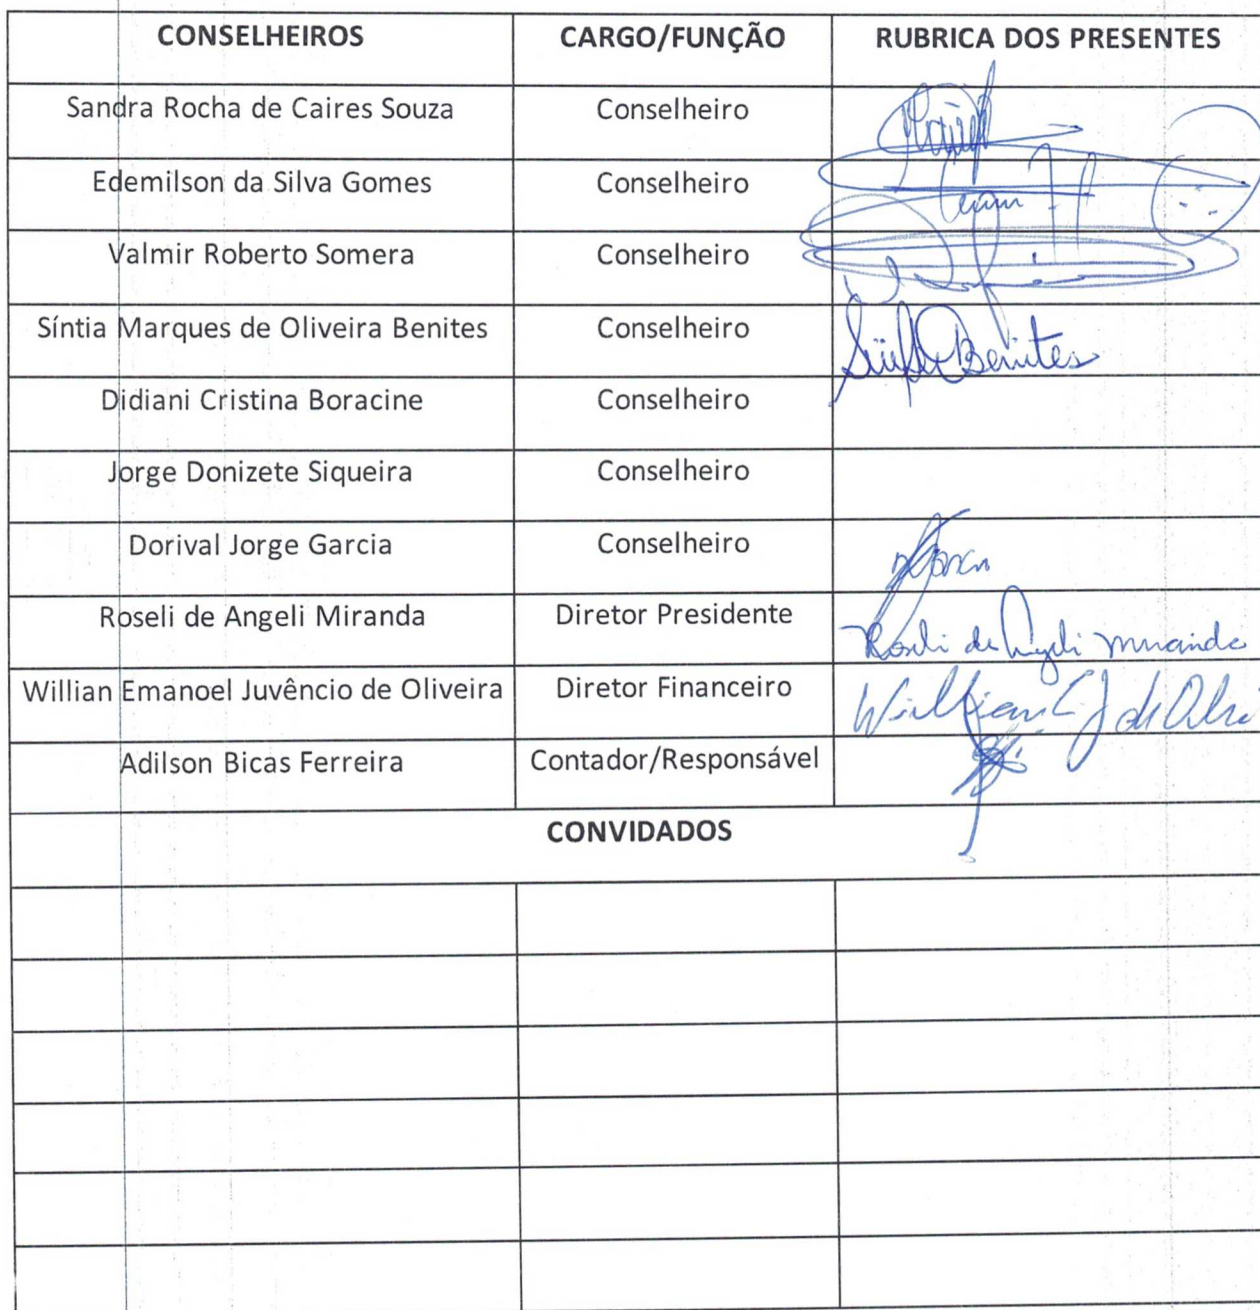 CONSELHEIROS CARGO/FUNÇÃO RUBRICA DOS PRESENTES
Sandra Rocha de Caires Souza Conselheiro
Edemilson da Silva Gomes Conselheiro
Valmir Roberto Somera Conselheiro
Síntia Marques de Oliveira Benites Conselheiro Benites
Didiani Cristina Boracine Conselheiro
Jorge Donizete Siqueira Conselheiro
Dorival Jorge Garcia Conselheiro
Roseli de Angeli Miranda Diretor Presidente Roseli de Angeli Miranda
Willian Emanoel Juvêncio de Oliveira Diretor Financeiro Willian E J de
Adilson Bicas Ferreira Contador/Responsável
CONVIDADOS